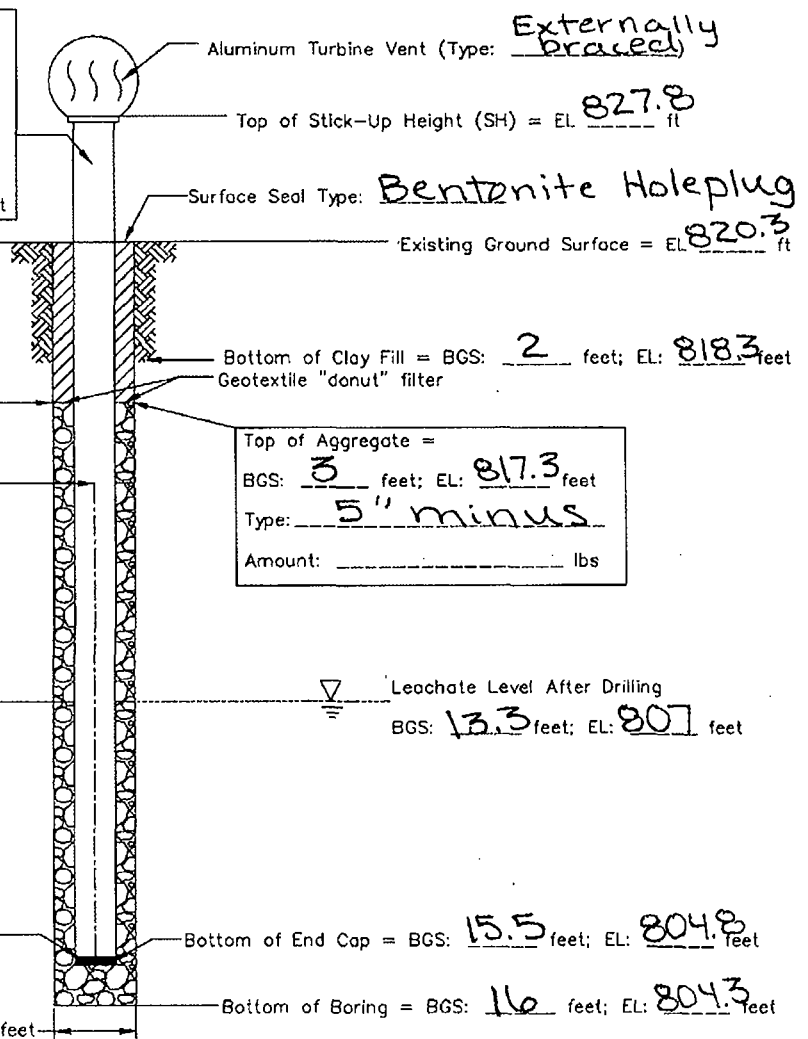 Externally
Aluminum Turbine Vent (Type: braced)
Top of Stick-Up Height (SH) = EL 827.8 ft
t
Surface Seal Type: Bentonite Holeplug
Existing Ground Surface = EL 820.3 ft
Bottom of Clay Fill = BGS: 2 feet; EL: 818.3 feet
Geotextile "donut" filter
Top of Aggregate =
BGS: 3 feet; EL: 817.3 feet
Type: 5" minus
Amount: ____ lbs
Leachate Level After Drilling
BGS: 13.3 feet; EL: 807 feet
Bottom of End Cap = BGS: 15.5 feet; EL: 804.8 feet
Bottom of Boring = BGS: 16 feet; EL: 804.3 feet
feet